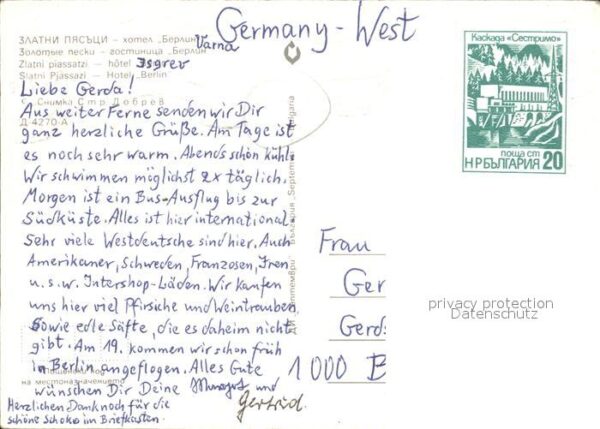 Germany - West
ЗЛАТНИ ПЯСЪЦИ — хотел „Берлин“
Varna
Золотые пески — гостиница „Берлин“
Zlatni piassatzi — hôtel
Isgrev
Slatni Pjassazi — Hotel „Berlin“
Снимка Стр. Добрев
Д 4270-А
Liebe Gerda!
Aus weiter Ferne senden wir Dir
ganz herzliche Grüße. Am Tage ist
es noch sehr warm. Abends schön kühl.
Wir schwimmen möglichst 2x täglich.
Morgen ist ein Bus-Ausflug bis zur
Südküste. Alles ist hier international.
Sehr viele Westdeutsche sind hier. Auch
Amerikaner, Schweden, Franzosen, Iren
u.s.w. Intershop-Läden. Wir kaufen
uns hier viel Pfirsiche und Weintrauben
Sowie edle Säfte, die es daheim nicht
gibt. Am 19. kommen wir schon früh
in Berlin angeflogen. Alles Gute
wünschen Dir Deine Margot und
Gertrud.
Herzlichen Dank noch für die
schöne Schoko im Briefkasten.
Пощенски код
на местоназначението
България „Septemvri“ Bulgaria
Каскада «Сестримо»
поща ст
НР БЪЛГАРИЯ 20
Frau
Ger
Gerds
1000 B
privacy protection
Datenschutz